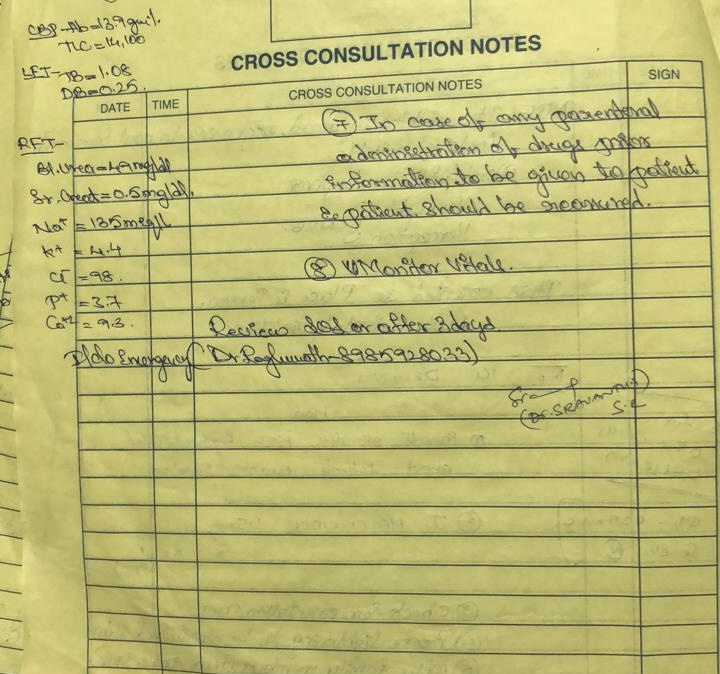 CBP - Hb = 13.9 gm%
TLC = 14,100
LFT - TB = 1.08
DB = 0.25.
CROSS CONSULTATION NOTES
DATE TIME CROSS CONSULTATION NOTES SIGN
RFT -
Bl. Urea = 49 mg/dl
Sr. Creat = 0.5 mg/dl.
Na+ = 135 meq/L
K+ = 4.4
Cl- = 98.
P+ = 3.7
Ca+2 = 9.3.
⑦ In case of any parenteral
administration of drugs prior
information to be given to patient
& patient should be reassured.
⑧ Monitor Vitals.
Review SOS or after 3 days
I/do Emergency (Dr. Raghunath - 8985928033)
(Dr. SRAVANTHI)